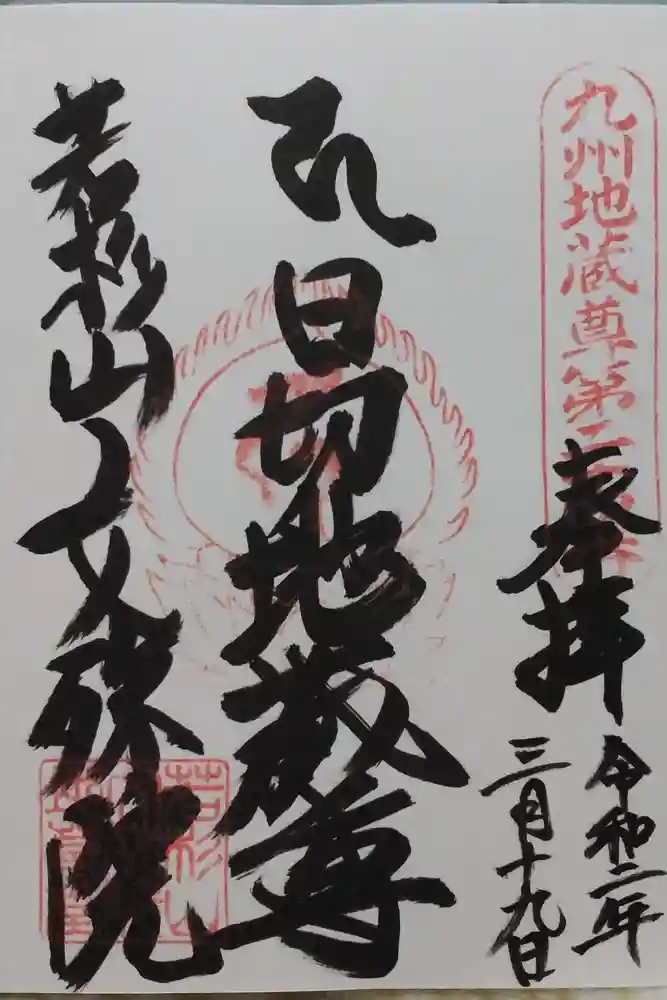 九州地蔵尊第二
奉拝
令和二年
三月十九日
日切地蔵尊
若杉山文殊院
若杉山